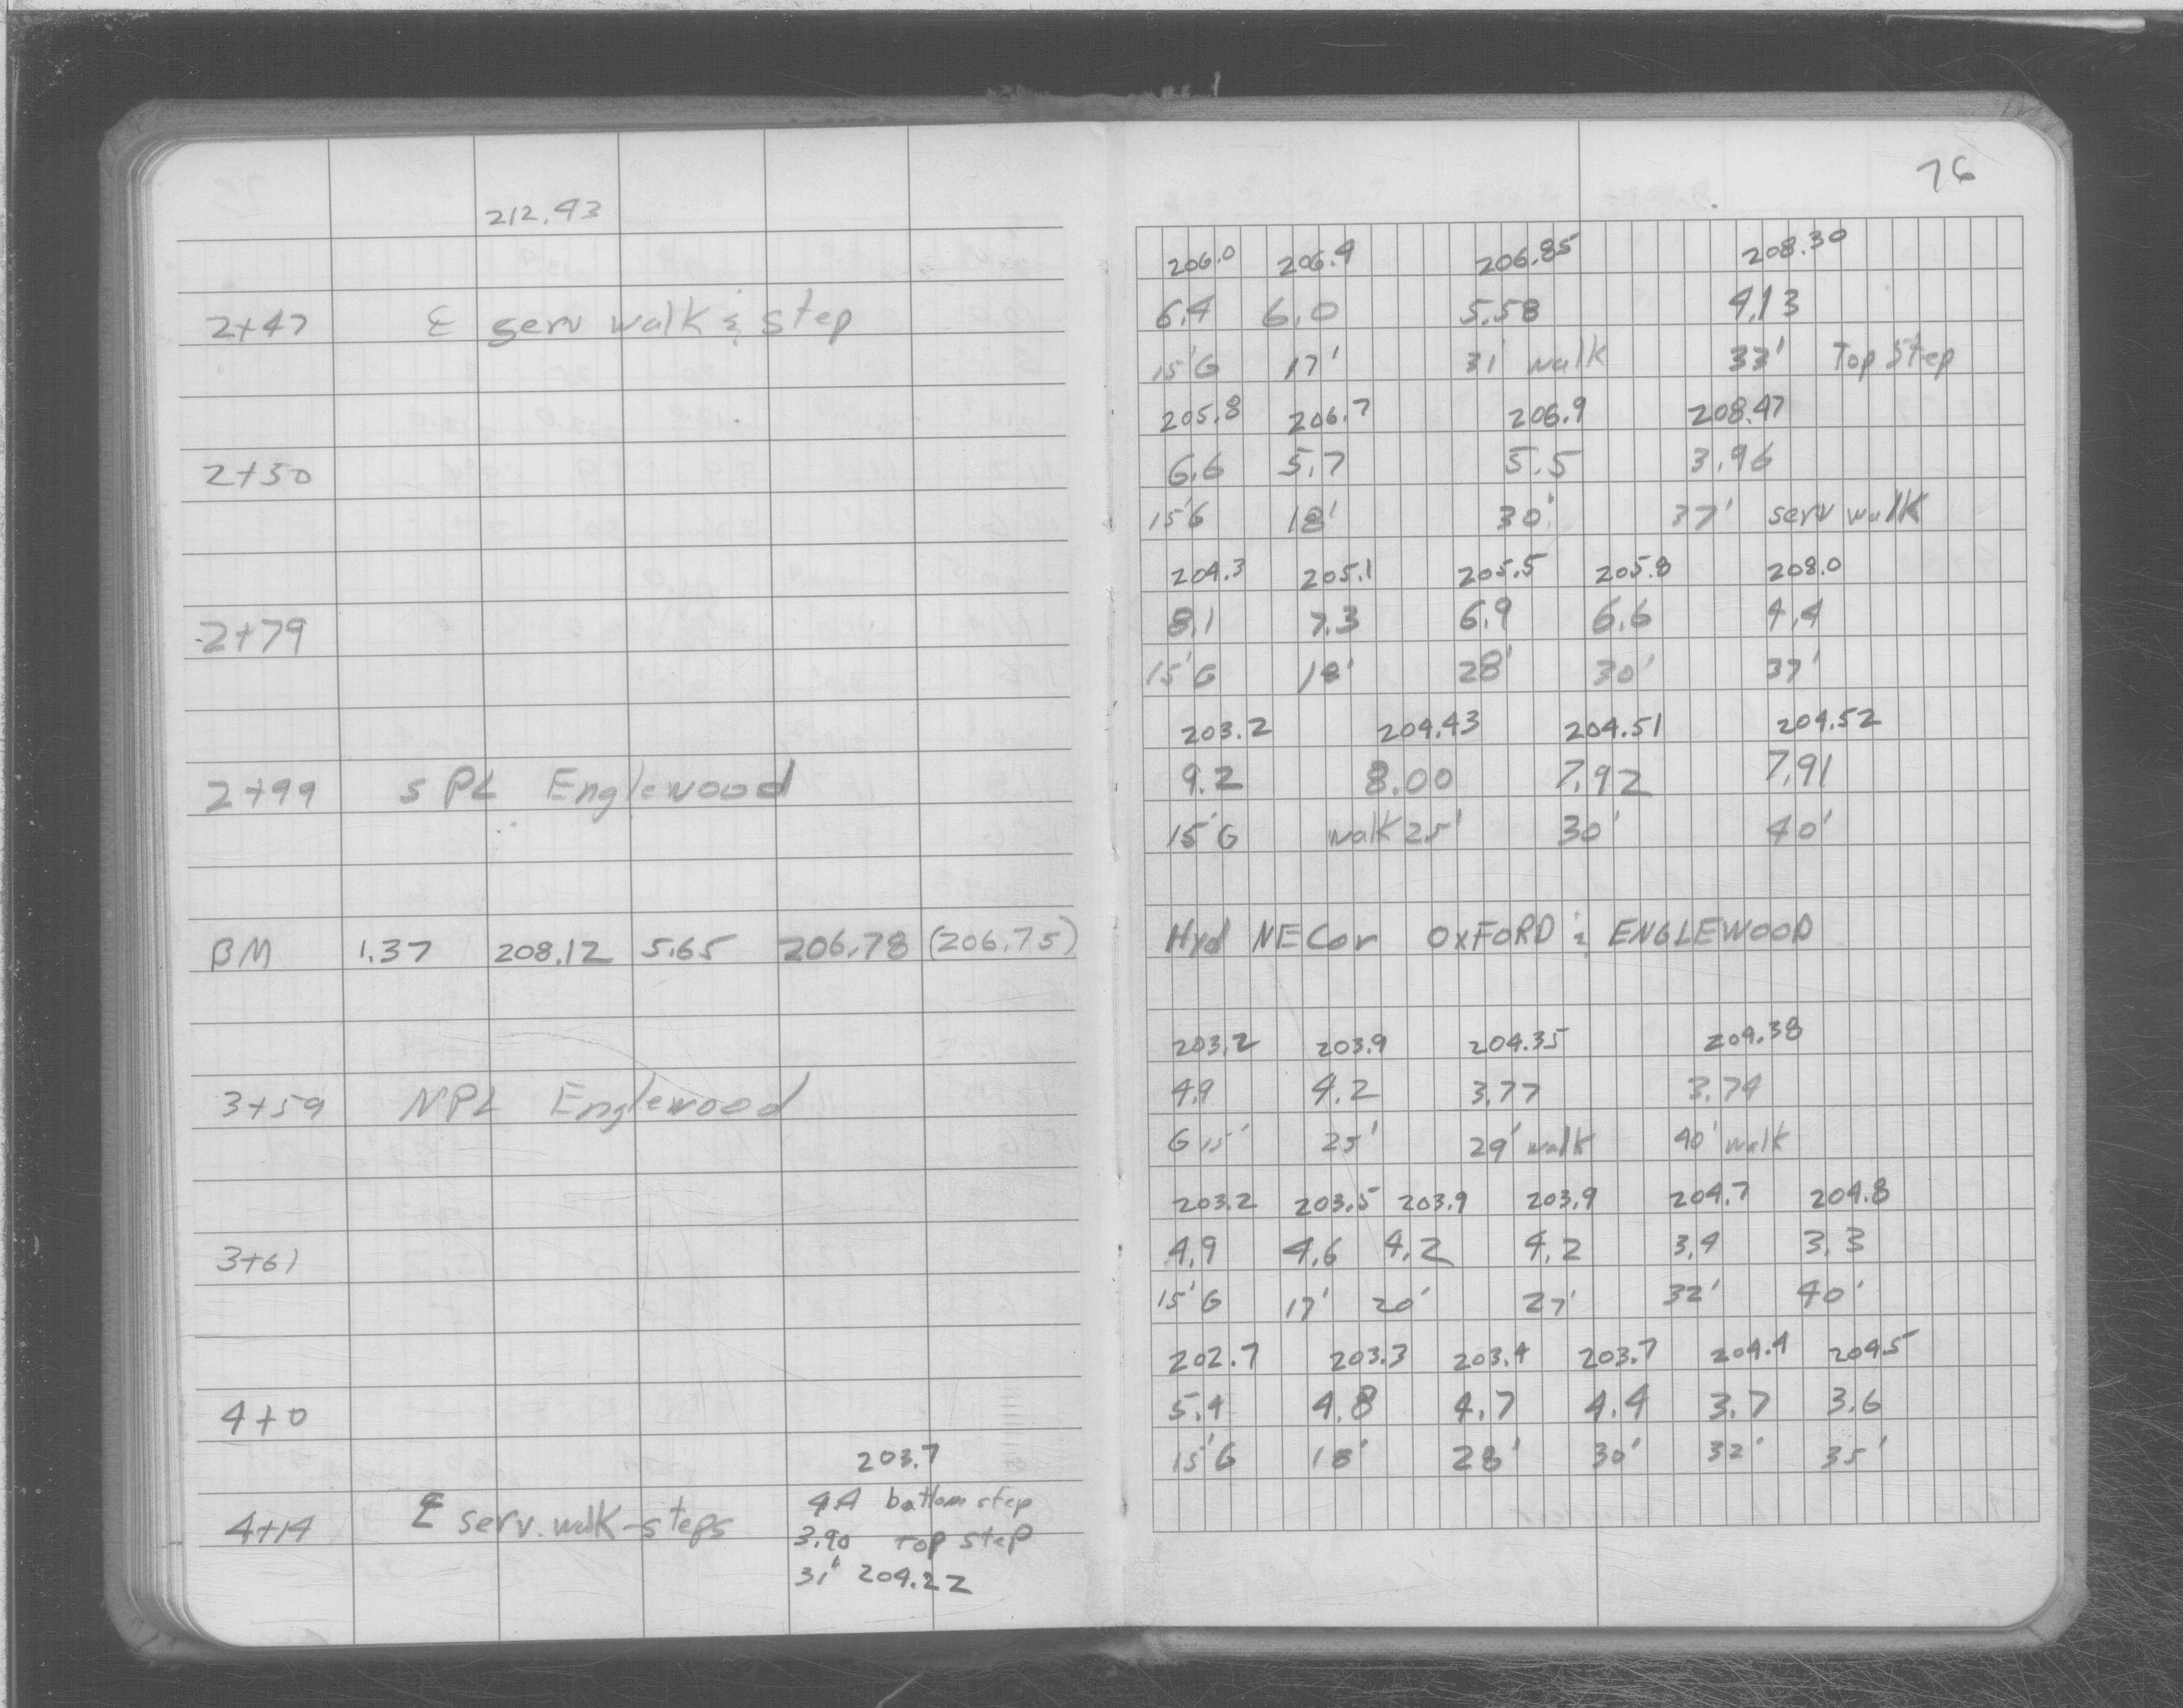 212.43
2+47 ℄ serv walk & step
2+50
2+79
2+99 S PL Englewood
BM 1.37 208.12 5.65 206.78 (206.75)
3+59 NPL Englewood
3+61
4+0
203.7
4.4 bottom step
4+14 ℄ serv. walk-steps
3.90 Top step
31' 204.22
76
206.0 206.4 206.85 208.30
6.4 6.0 5.58 4.13
15'G 17' 31' walk 33' Top Step
205.8 206.7 206.9 208.47
6.6 5.7 5.5 3.96
15'G 18' 30' 37' serv walk
204.3 205.1 205.5 205.8 208.0
8.1 7.3 6.9 6.6 4.4
15'G 18' 28' 30' 37'
203.2 204.43 204.51 204.52
9.2 8.00 7.92 7.91
15'G walk 25' 30' 40'
Hyd NE Cor OXFORD & ENGLEWOOD
203.2 203.9 204.35 204.38
4.9 4.2 3.77 3.74
G 15' 25' 29' walk 40' walk
203.2 203.5 203.9 203.9 204.7 204.8
4.9 4.6 4.2 4.2 3.4 3.3
15'G 17' 20' 27' 32' 40'
202.7 203.3 203.4 203.7 204.4 204.5
5.4 4.8 4.7 4.4 3.7 3.6
15'G 18' 28' 30' 32' 35'